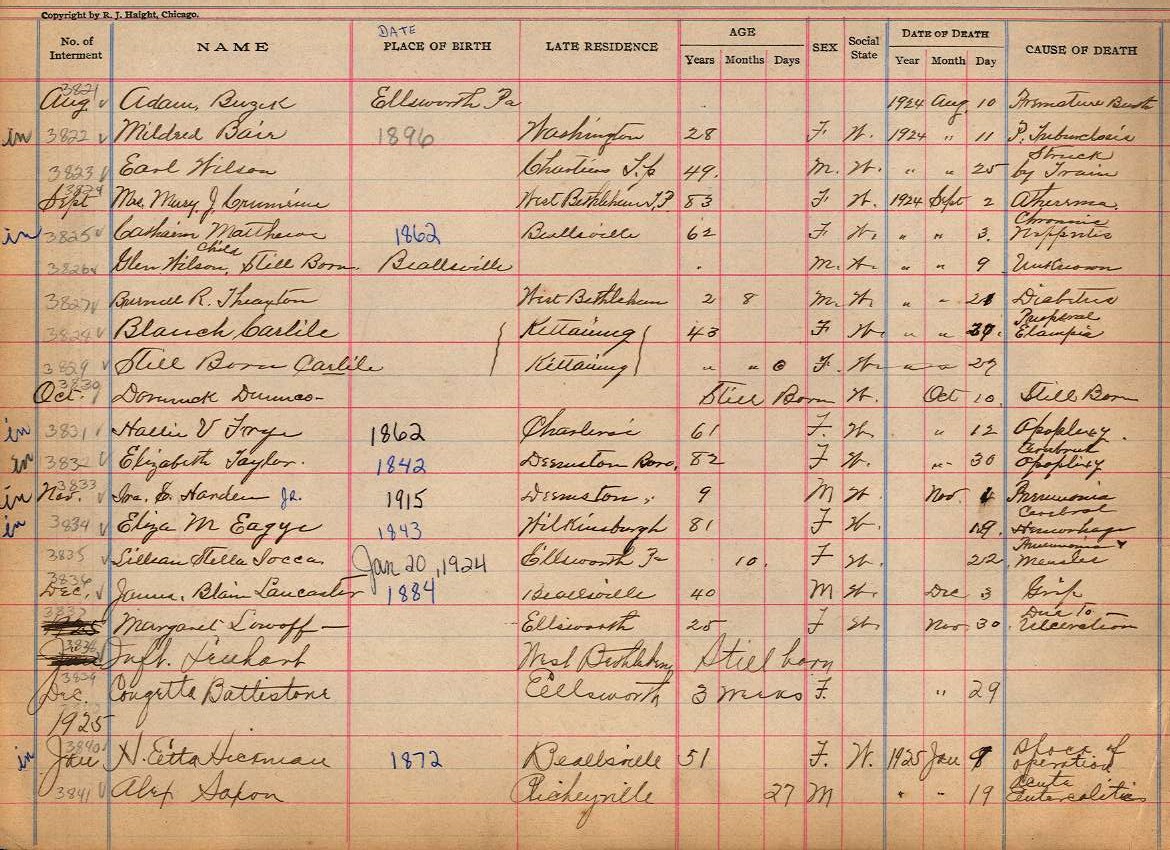 Copyright by R. J. Haight, Chicago.
No. of Interment NAME DATE PLACE OF BIRTH LATE RESIDENCE AGE Years Months Days SEX Social State DATE OF DEATH Year Month Day CAUSE OF DEATH
3821 Aug Adam, Buzek Ellsworth Pa 1924 Aug 10 Premature Birth
in 3822 Mildred Bair 1896 Washington 28 F W. 1924 " 11 P. Tuberclosis
3823 Earl Wilson 49. M. W. " " 25 Struck by Train
3824 Sept Mrs. Mary J Crumrine West Bethlehem T.P. 83 F W. 1924 Sept 2
in 3825 Matthews 1862 Beallsville 62 F W. " " 3. Chronic
3826 Glen Wilson, Childs Still Born. Beallsville M. W. " " 9 Unknown
3827 Burnell R. Thrayton West Bethlehem 2 8 M. W. " " 21 Diabetus
3828 Blanch Carlile Kittaning 43 F W. " "
3829 Still Born Carlile Kittaning " " 0 F. W. 27
3830 Oct. Still Born W. Oct 10. Still Born
in 3831 Hallie V Forge 1862 Charleroi 61 F. W. " 12 Apoplexy.
in 3832 Elizabeth Taylor. 1842 Deemston Boro. 82 F W. " 30 Apoplexy
in 3833 Nov. Ira. E. Harden Jr. 1915 Deemston. 9 M W. Nov. 4 Pneumonia
in 3834 Eliza M Eagye 1843 Wilkinsburgh 81 F W. 19. Cerebral Hemorrhage
3835 Lillian Stella Socca Jan 20, 1924 Ellsworth Pa 10. F W. 22 Pneumonia Measles
3836 Dec. James, Blain Lancaster 1884 Beallsville 40 M W. Dec 3 Grip
3837 Margaret Lowoff Ellsworth 25 F W. Nov 30 Due to Ulceration
3838 Inft. Lenhart West Bethlehem Still born
3839 Dec. Congetta Battistone Ellsworth 3 weeks F. " 29
1925
in 3840 Jan N. Etta Hickman 1872 Beallsville 51 F. W. 1925 Jan 9 Shock of operation
3841 Alex Saxon Richeyville 27 M " " 19 Acute Entercolitis